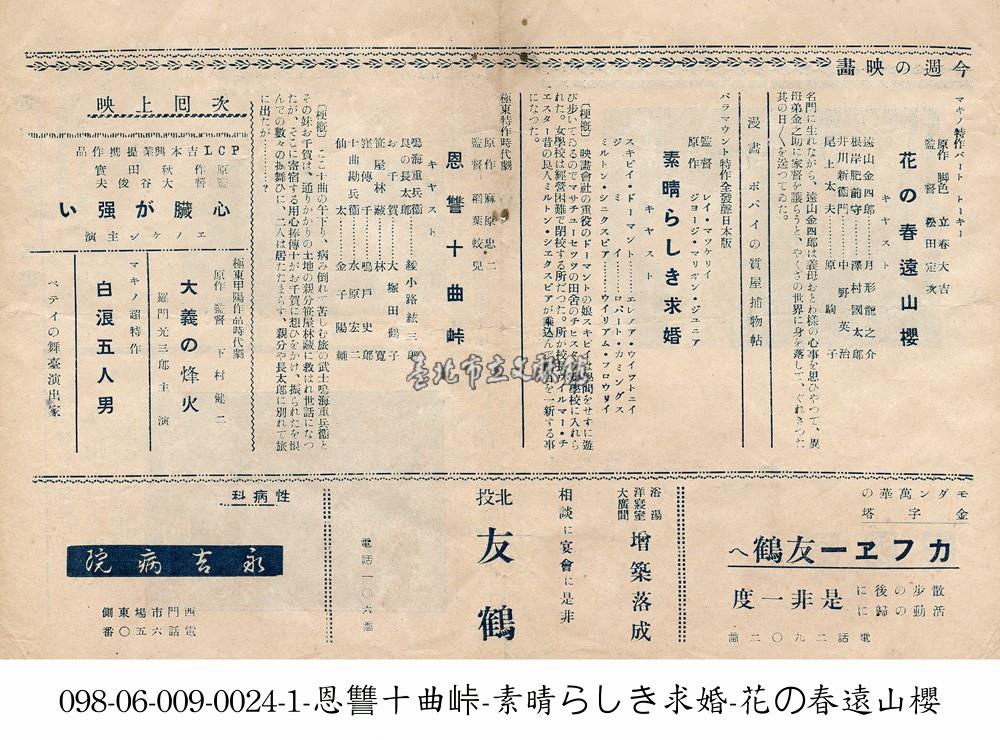 今週の映畵
マキノ特作パートトーキー
原作脚色 立春大吉
監督 松田定次
花の春遠山櫻
キヤスト
遠山金四郎……月形龍之介
根岸肥前守……澤村國太郎
井川新衞門……中野英治
尾上太夫……原駒子
名門に生れながら、遠山金四郎は義母おとわ様の心事を思ひやつて、異
母弟金之助に家督を讓らうと、やくざの世界に身を落して、ぐれきつた
其の日〱を送つてゐた。
漫畵 ポパイの質屋捕物帖
パラマウント特作全發聲日本版
監督 レイ・マツケリイ
原作 ジヨージ・マリオン・ジユニア
素晴らしき求婚
キヤスト
スキピイ・ドーマント……エレノア・ウイツトニイ
ジミイ……ロバート・カミングス
ミルトン・シエクスピア……ウイリアム・フロウリイ
〔梗概〕 映畵會社の重役のドーマントの娘スキピイは學問をせずに遊
び歩いてゐるのでマサチユーセツツの田舎のチエスター女學校に入れら
れた。女學校は經營困難で閉校する所だつた。所が校長ウイルマー・チ
エスターの昔の良人ミルトン・シエクスピアが乘込んで學校を一新する事
になつた。
極東特作時代劇
原作 麻原忠二
監督 稻葉蛟兒
恩讐十曲峠
キヤスト
鳴海重兵衞……綾小路絃三郎
長の長太郎
妹千賀……大塚田鶴子
笹屋林藏……林寛
窪傳十……鳴戸史郎
十曲勘兵衞……水原宏二
仙太……金子陽
〔梗概〕 ここ十曲の午下り、病み倒れて苦しむ旅の武士鳴海重兵衞と
その妹お千賀は、通りかかりの土地の親分笹屋林藏に救はれ世話になつ
たが、そこに寄宿する用心捧傳十がお千賀に想ひをかけ、振られたを恨
んでの數々の振舞ひに、二人は居たたまらず、親分や長太郎に別れて旅
に出たが………？
次回上映
PCL吉本興業提携作品
原作 秋田實
監督 大谷俊夫
心臟が强い
エノケン主演
極東甲陽作品時代劇
原作監督 下村健二
大義の烽火
羅門光三郎主演
マキノ超特作
白浪五人男
ベテイの舞臺演出家
モダン萬華の
金字塔
カフヱー友鶴へ
散歩の後に
活動の歸に
是非一度
電話二九〇二番
浴湯
洋寢室
大廣間
增築落成
相談に宴會に是非
北投
友鶴
電話一〇六番
性病科
永吉病院
西門市場東側
電話六五〇番
臺北市立文獻館
098-06-009-0024-1-恩讐十曲峠-素晴らしき求婚-花の春遠山櫻